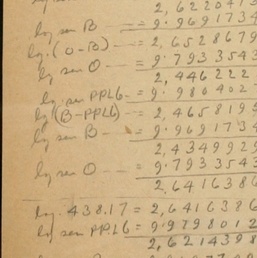 2,6220413
log sen B --- = 9.9691734
log (O-B) --- = 2,6528679
log sen O --- = 9.7933543
2,446222
log sen PPL6 = 9.980402
log (B-PPL6) = 2,4658195
log sen B --- = 9.9691734
2,4349929
log sen O --- = 9.7933543
2,6416386
Log. 438.17 = 2,6416386
log sen PPL6 = 9.9798012
2,6214398